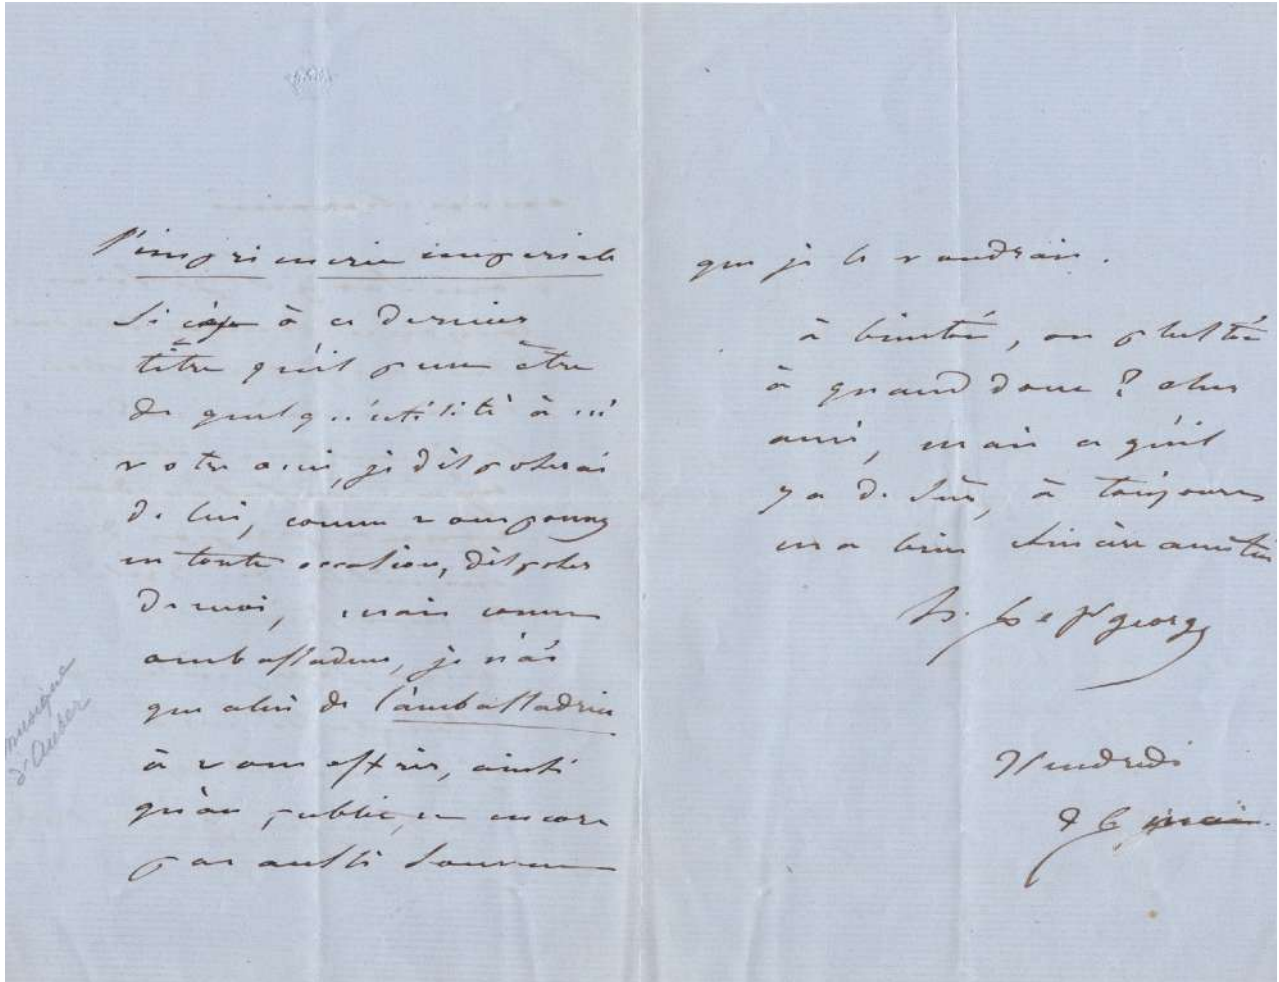 l'imprimerie impériale
Si c'est à ce dernier
titre qu'il peut être
de quelqu'utilité à
votre ami, je disposerai
de lui, comme vous pouvez
en toute occasion, disposer
de moi, mais comme
ambassadeur, je n'ai
que celui de l'ambassadrice
à vous offrir, ainsi
qu'au public, et encore
pas aussi souvent
musique
d'Auber
que je le voudrais.
à bientôt, ou plustôt
à quand donc ? cher
ami, mais ce qu'il
y a de sûr, à toujours
ma bien sincère amitié
de St georges
Vendredi